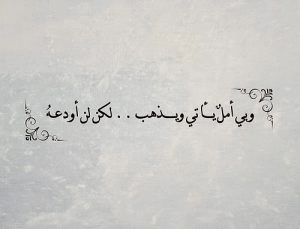 وبي أملٌ يأتي ويذهب .. لكن لن أودعهُ